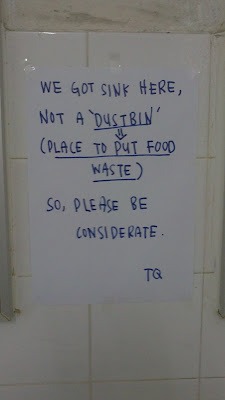 WE GOT SINK HERE,
NOT A 'DUSTBIN'
⇓
(PLACE TO PUT FOOD
WASTE)
SO, PLEASE BE
CONSIDERATE.
TQ